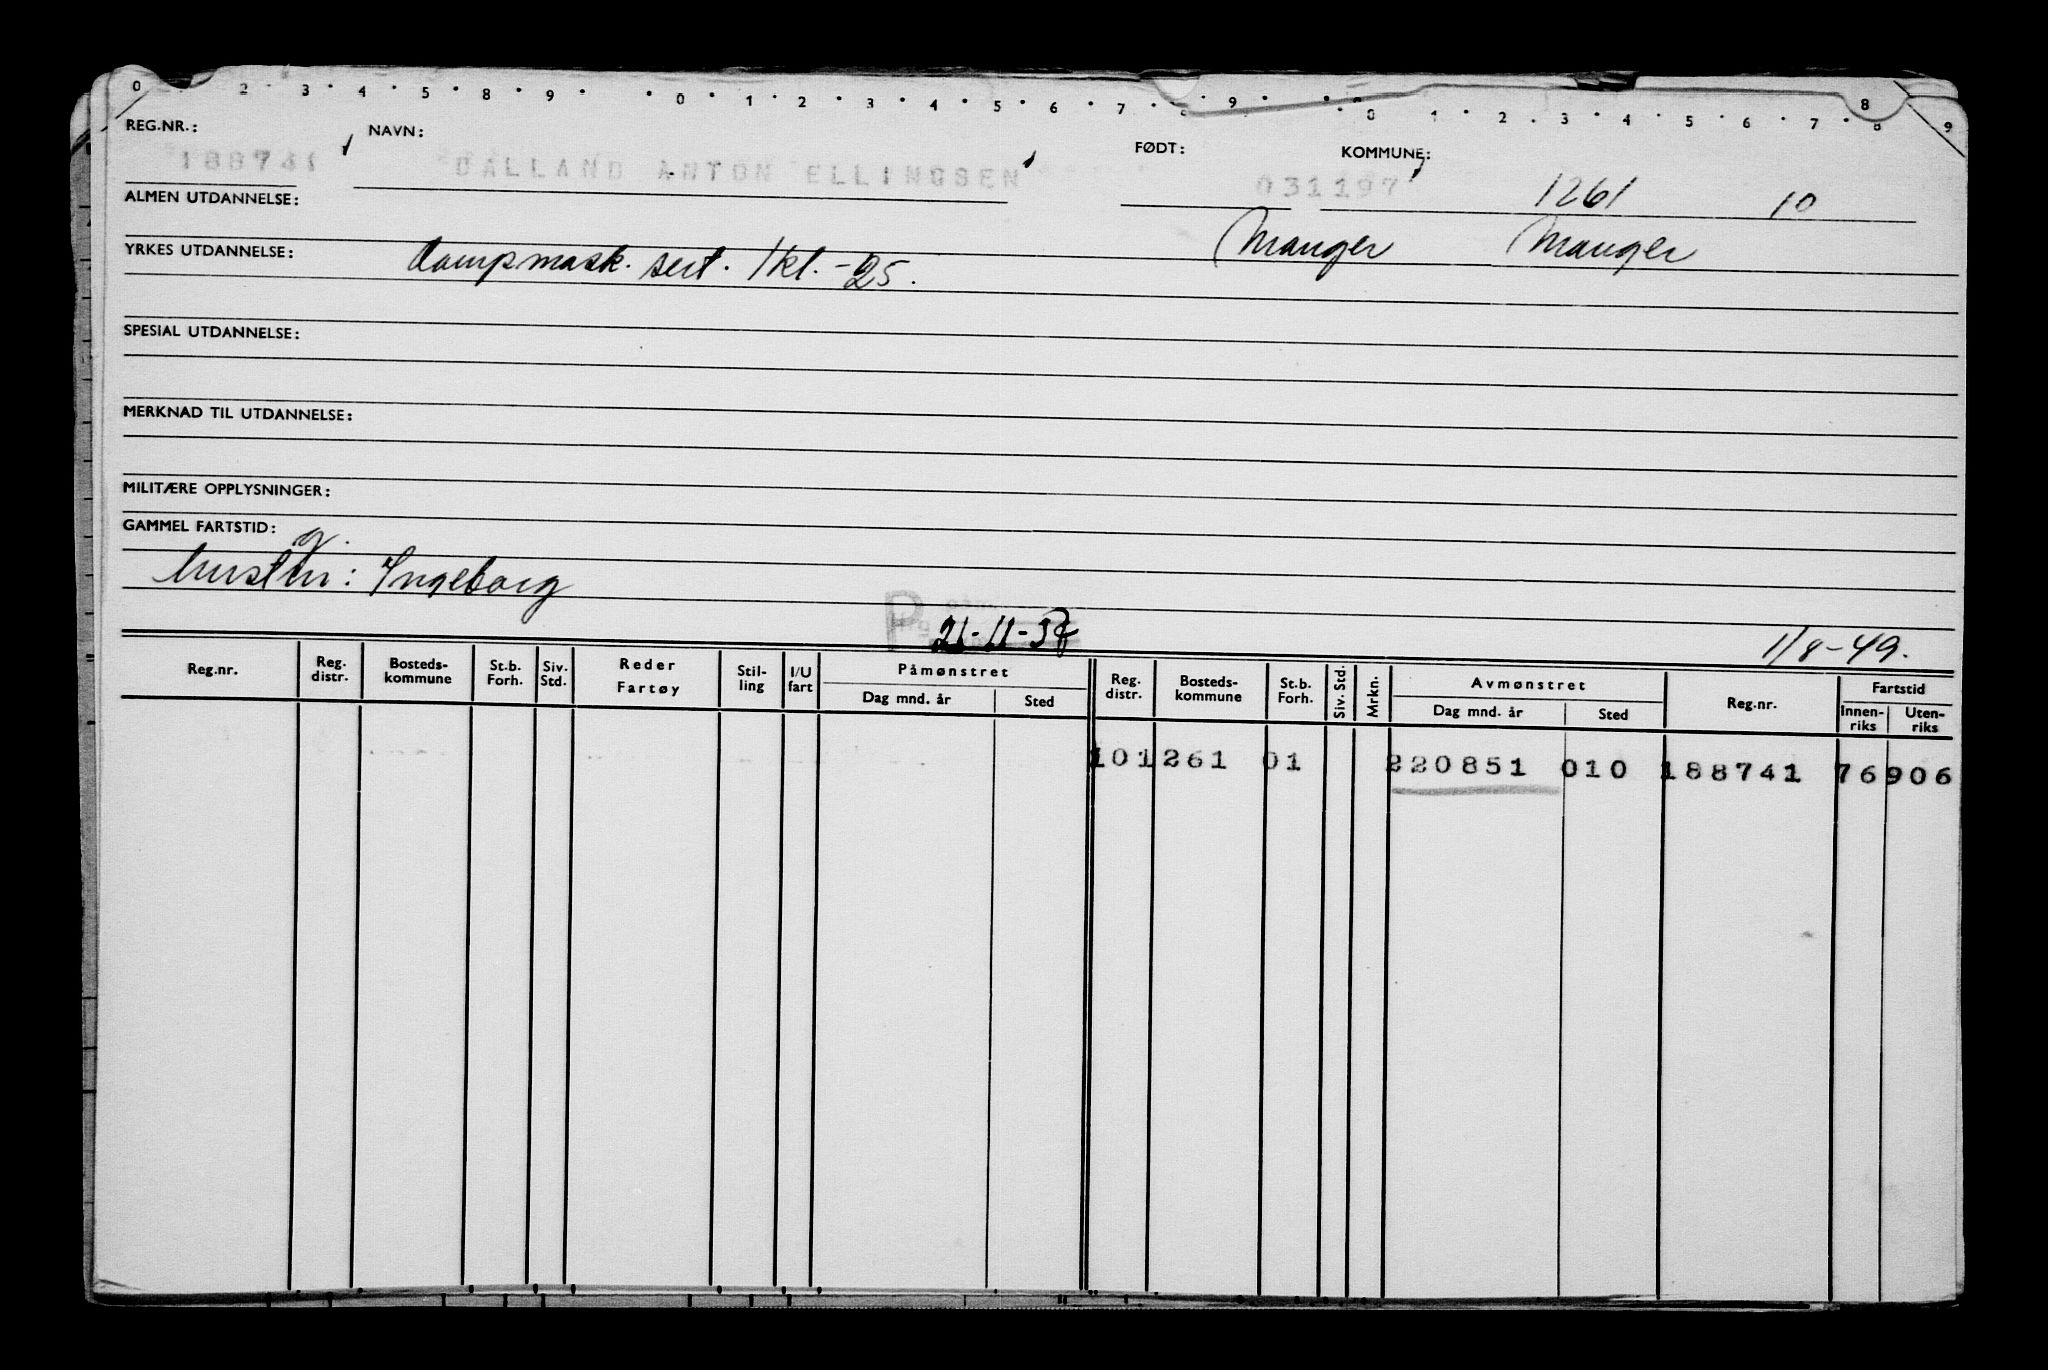 0 2 3 4 5 8 9 0 1 2 3 4 5 6 7 9 0 1 2 3 4 5 6 7 8 9
8
REG.NR.: NAVN: FØDT: KOMMUNE:
188741 DALLAND ANTON ELLINGSEN 031197 1261 10
ALMEN UTDANNELSE:
Manger Manger
YRKES UTDANNELSE: Dampmask. sert. 1kl. -25.
SPESIAL UTDANNELSE:
MERKNAD TIL UTDANNELSE:
MILITÆRE OPPLYSNINGER:
GAMMEL FARTSTID:
g.
hustru: Ingeborg
P 21-11-37 1/8-49.
Reg.nr. Reg. distr. Bosteds-kommune St.b. Forh. Siv. Std. Reder Fartøy Stil-ling I/U fart Påmønstret Dag mnd. år Sted Reg. distr. Bosteds-kommune St.b. Forh. Siv. Std. Mrkn. Avmønstret Dag mnd. år Sted Reg.nr. Fartstid Innen-riks Uten-riks
101261 01 220851 010 188741 76906